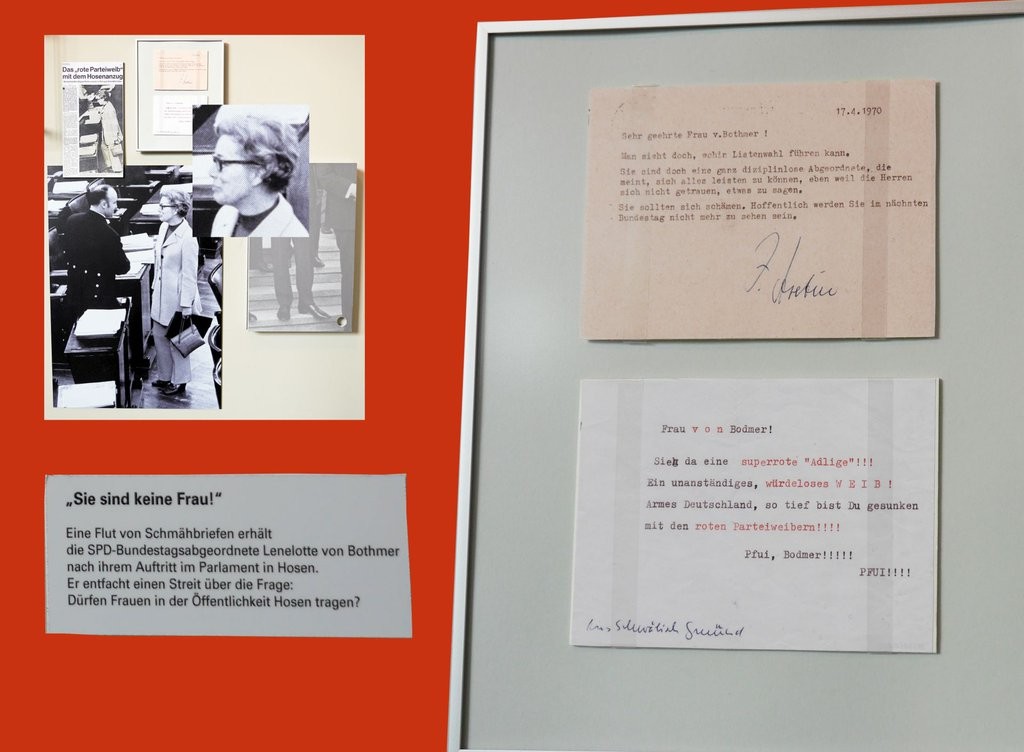 Das „rote Parteiweib“
mit dem Hosenanzug
„Sie sind keine Frau!“
Eine Flut von Schmähbriefen erhält
die SPD-Bundestagsabgeordnete Lenelotte von Bothmer
nach ihrem Auftritt im Parlament in Hosen.
Er entfacht einen Streit über die Frage:
Dürfen Frauen in der Öffentlichkeit Hosen tragen?
17.4.1970
Sehr geehrte Frau v.Bothmer !
Man sieht doch, wohin Listenwahl führen kann.
Sie sind doch eine ganz disziplinlose Abgeordnete, die
meint, sich alles leisten zu können, eben weil die Herren
sich nicht getrauen, etwas zu sagen.
Sie sollten sich schämen. Hoffentlich werden Sie im nächsten
Bundestag nicht mehr zu sehen sein.
Frau v o n Bodmer!
Sieh da eine superrote "Adlige"!!!
Ein unanständiges, würdeloses W E I B !
Armes Deutschland, so tief bist Du gesunken
mit den roten Parteiweibern!!!!
Pfui, Bodmer!!!!!
PFUI!!!!
Aus Schwäbisch Gmünd